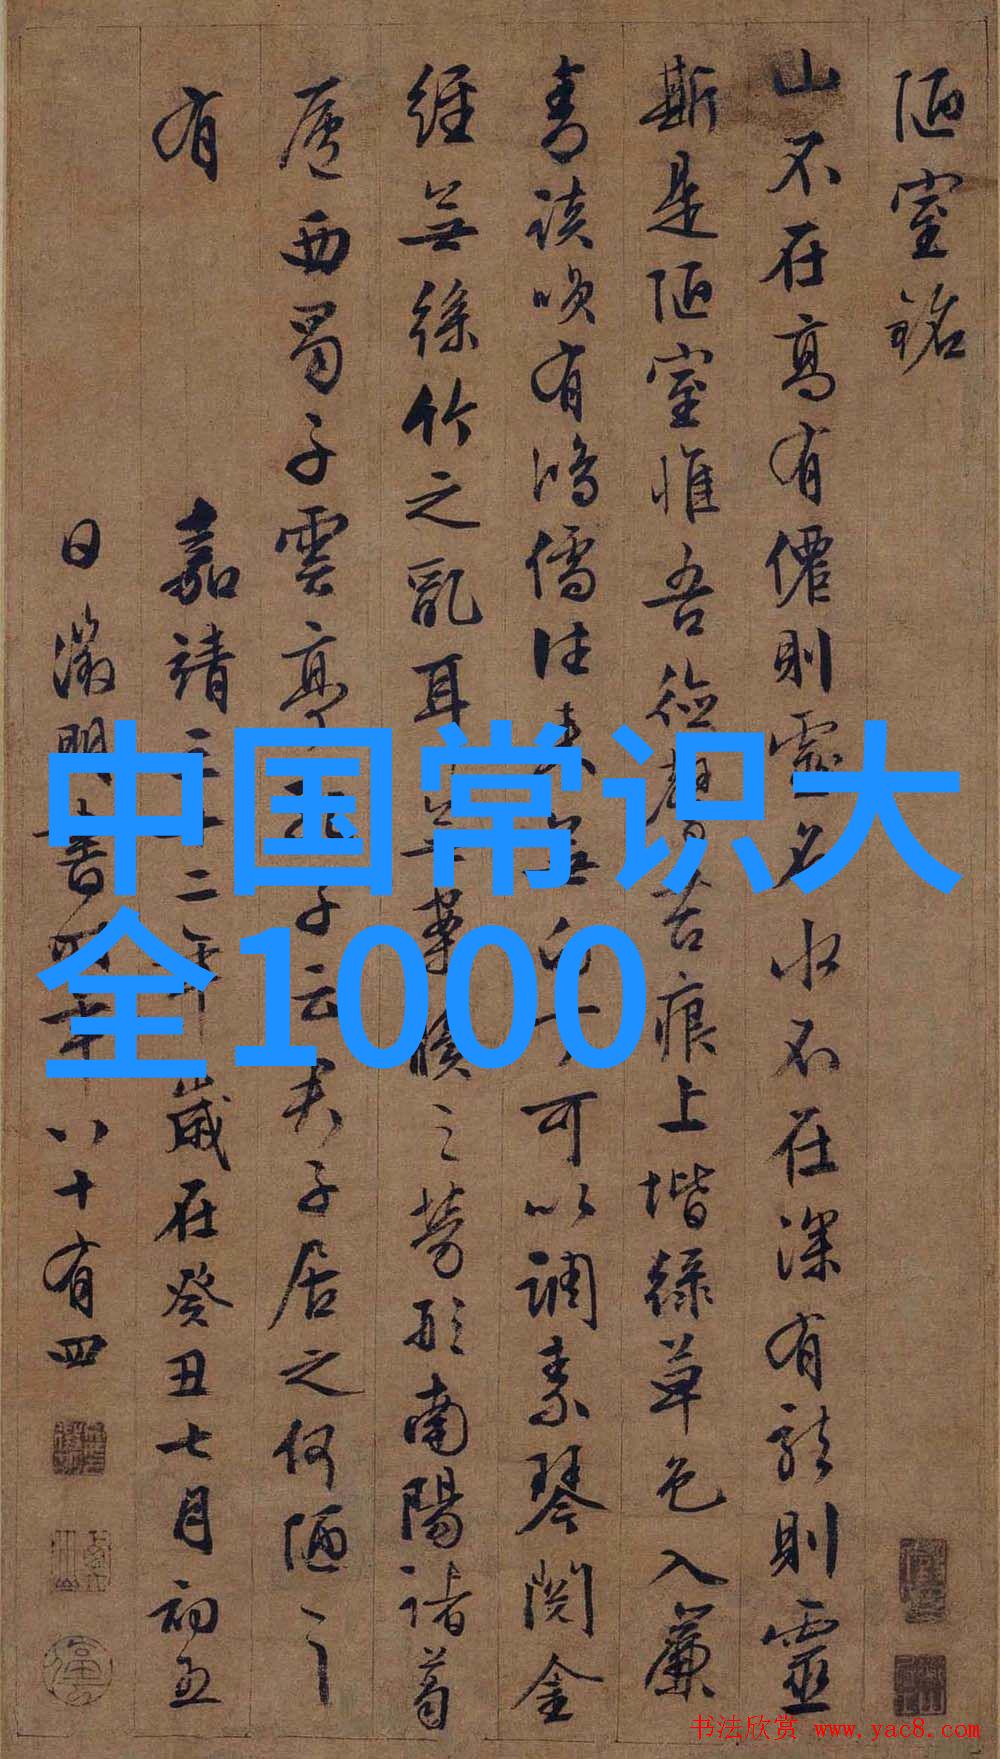 陋室銘
山不在高有僊則靈名水不在深有龍則靈
斯是陋室惟吾德馨苔痕上堦綠草色入簾
青談咲有鴻儒往來無白丁可以調素琴閱金
經無絲竹之亂耳無案牘之勞形南陽諸葛
廬西蜀子雲亭孔子云夫子居之何陋之
有
嘉靖三十二年歲在癸丑七月初五
日徵明書時年八十有四
中国常识大
全1000
书法欣赏 www.yac8.com